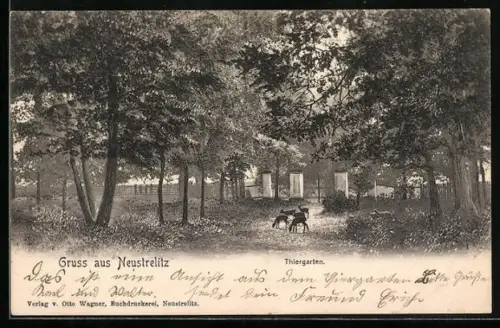 Gruss aus Neustrelitz
Thiergarten.
Das ist eine Ansicht aus dem Thiergarten. Grüße
Karl und Walter. sendet dein Freund Erich
Verlag v. Otto Wagner, Buchdruckerei, Neustrelitz.